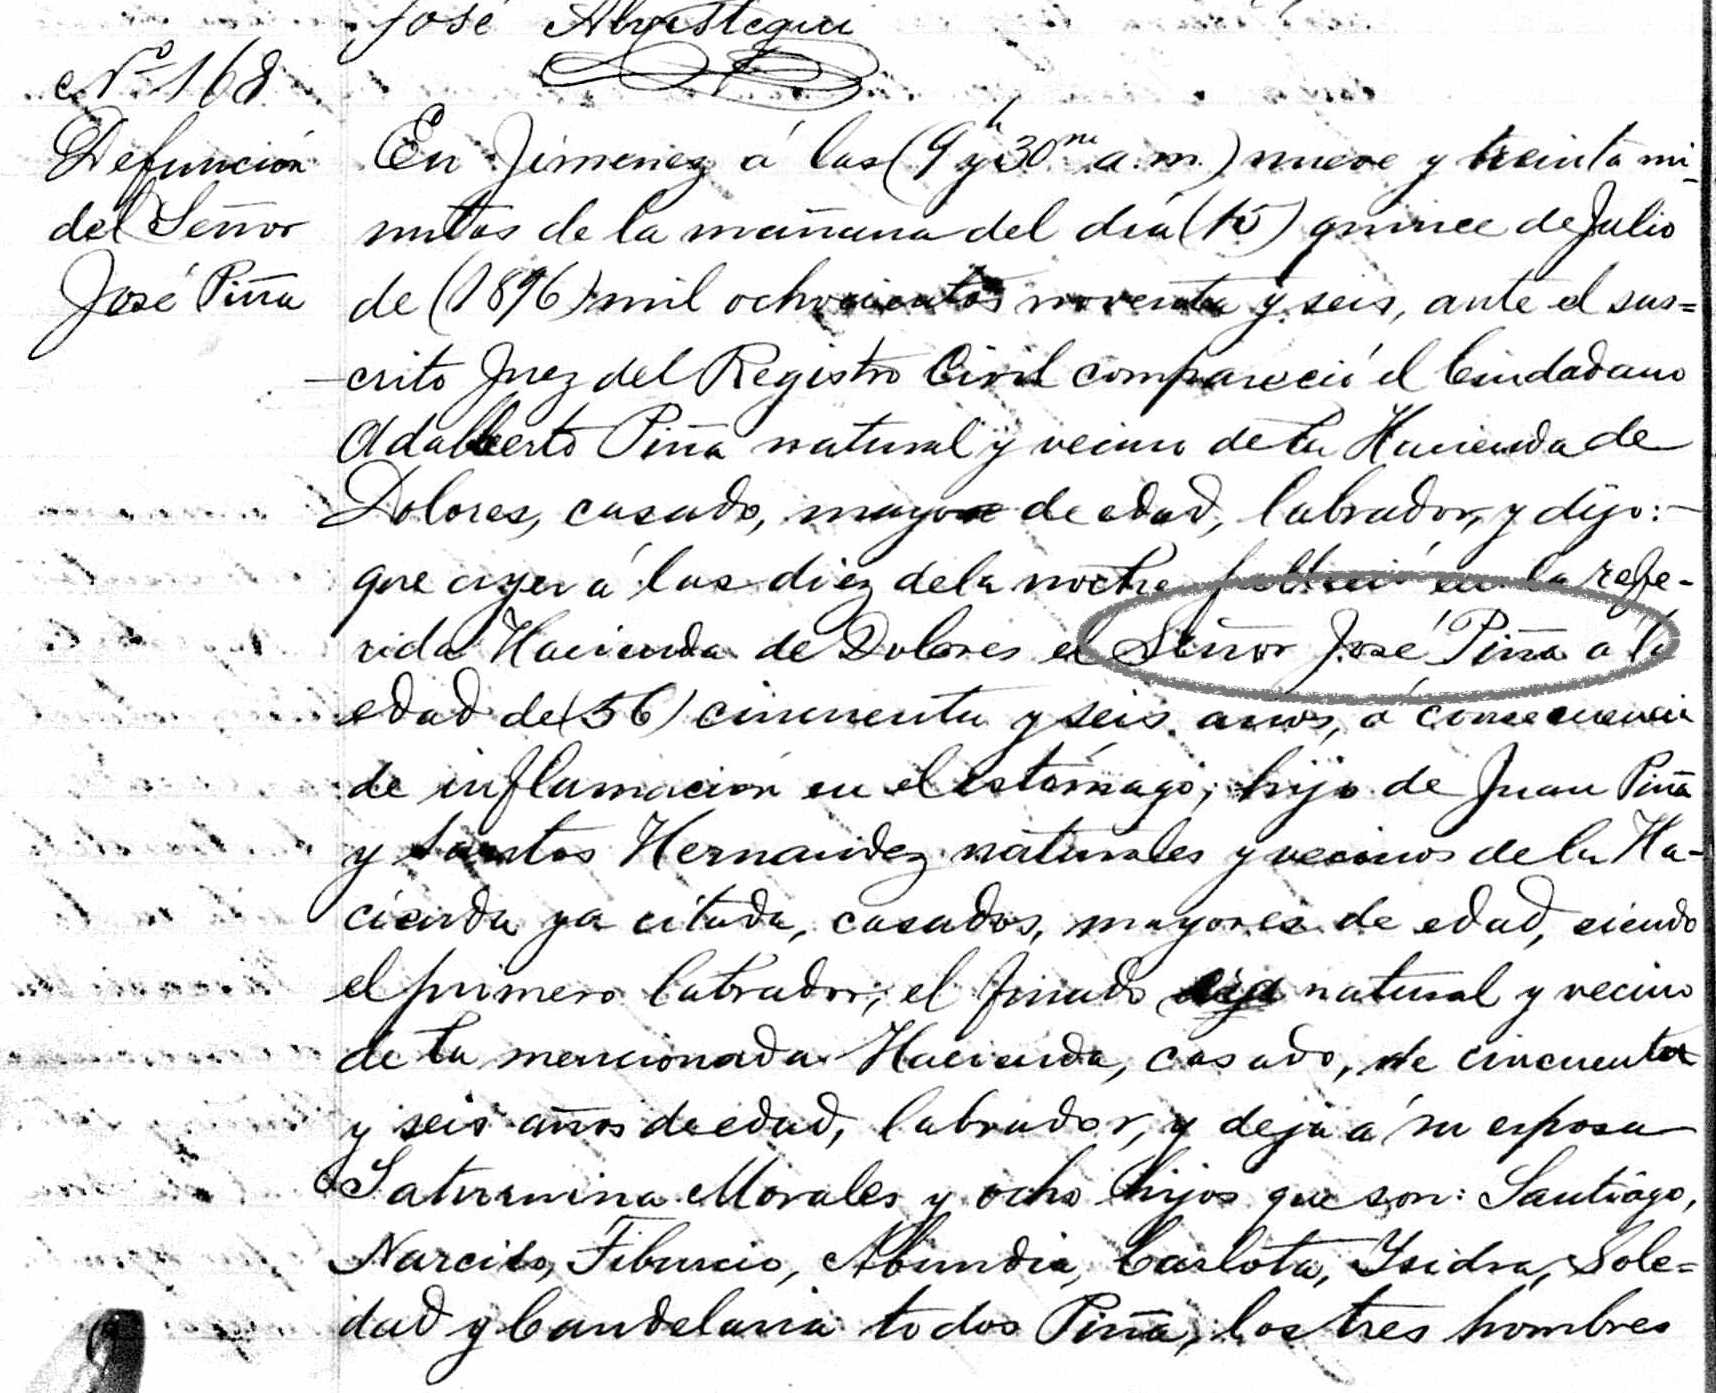 José Alvestegui
No 168
Defunción
del Señor
José Piña
En Jimenez á las (9h y 30m a.m.) nueve y treinta mi-
nutos de la mañana del dia (15) quince de Julio
de (1896) mil ochocientos noventa y seis, ante el sus=
crito Juez del Registro Civil compareció el Ciudadano
Adalberto Piña natural y vecino de la Hacienda de
Dolores, casado, mayor de edad, labrador, y dijo:-
que ayer á las diez de la noche falleció en la refe-
rida Hacienda de Dolores el Señor José Piña a la
edad de (56) cincuenta y seis anos, á consecuencia
de inflamacion en el estómago; hijo de Juan Piña
y Santos Hernandez naturales y vecinos de la Ha-
cienda ya citada, casados, mayores de edad, siendo
el primero labrador; el finado era natural y vecino
de la mencionada Hacienda, casado, de cincuenta
y seis años de edad, labrador, y deja á su esposa
Saturnina Morales y ocho hijos que son: Santiago,
Narciso, Tiburcio, Abundia, Carlota, Ysidra, Sole=
dad y Candelaria todos Piña, los tres hombres